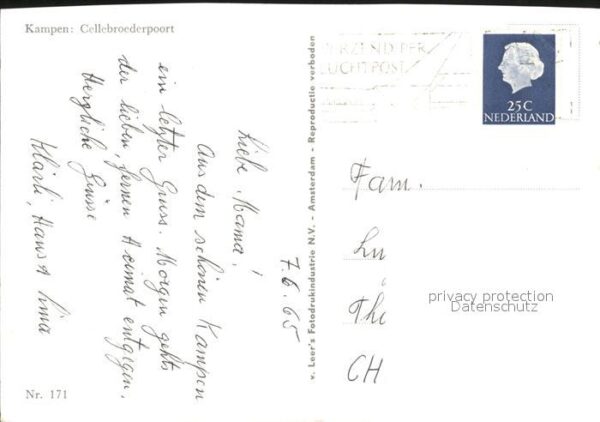 Kampen: Cellebroederpoort
7.6.65
Liebe Mama!
Aus dem schönen Kampen
ein letzter Gruss. Morgen gehts
der lieben, fernen Heimat entgegen.
Herzliche Grüsse
Hansa
Nr. 171
v. Leer's Fotodrukindustrie N.V. - Amsterdam - Reproductie verboden
ERZEND PER
LUCHTPOST
25C
NEDERLAND
Fam.
CH
privacy protection
Datenschutz